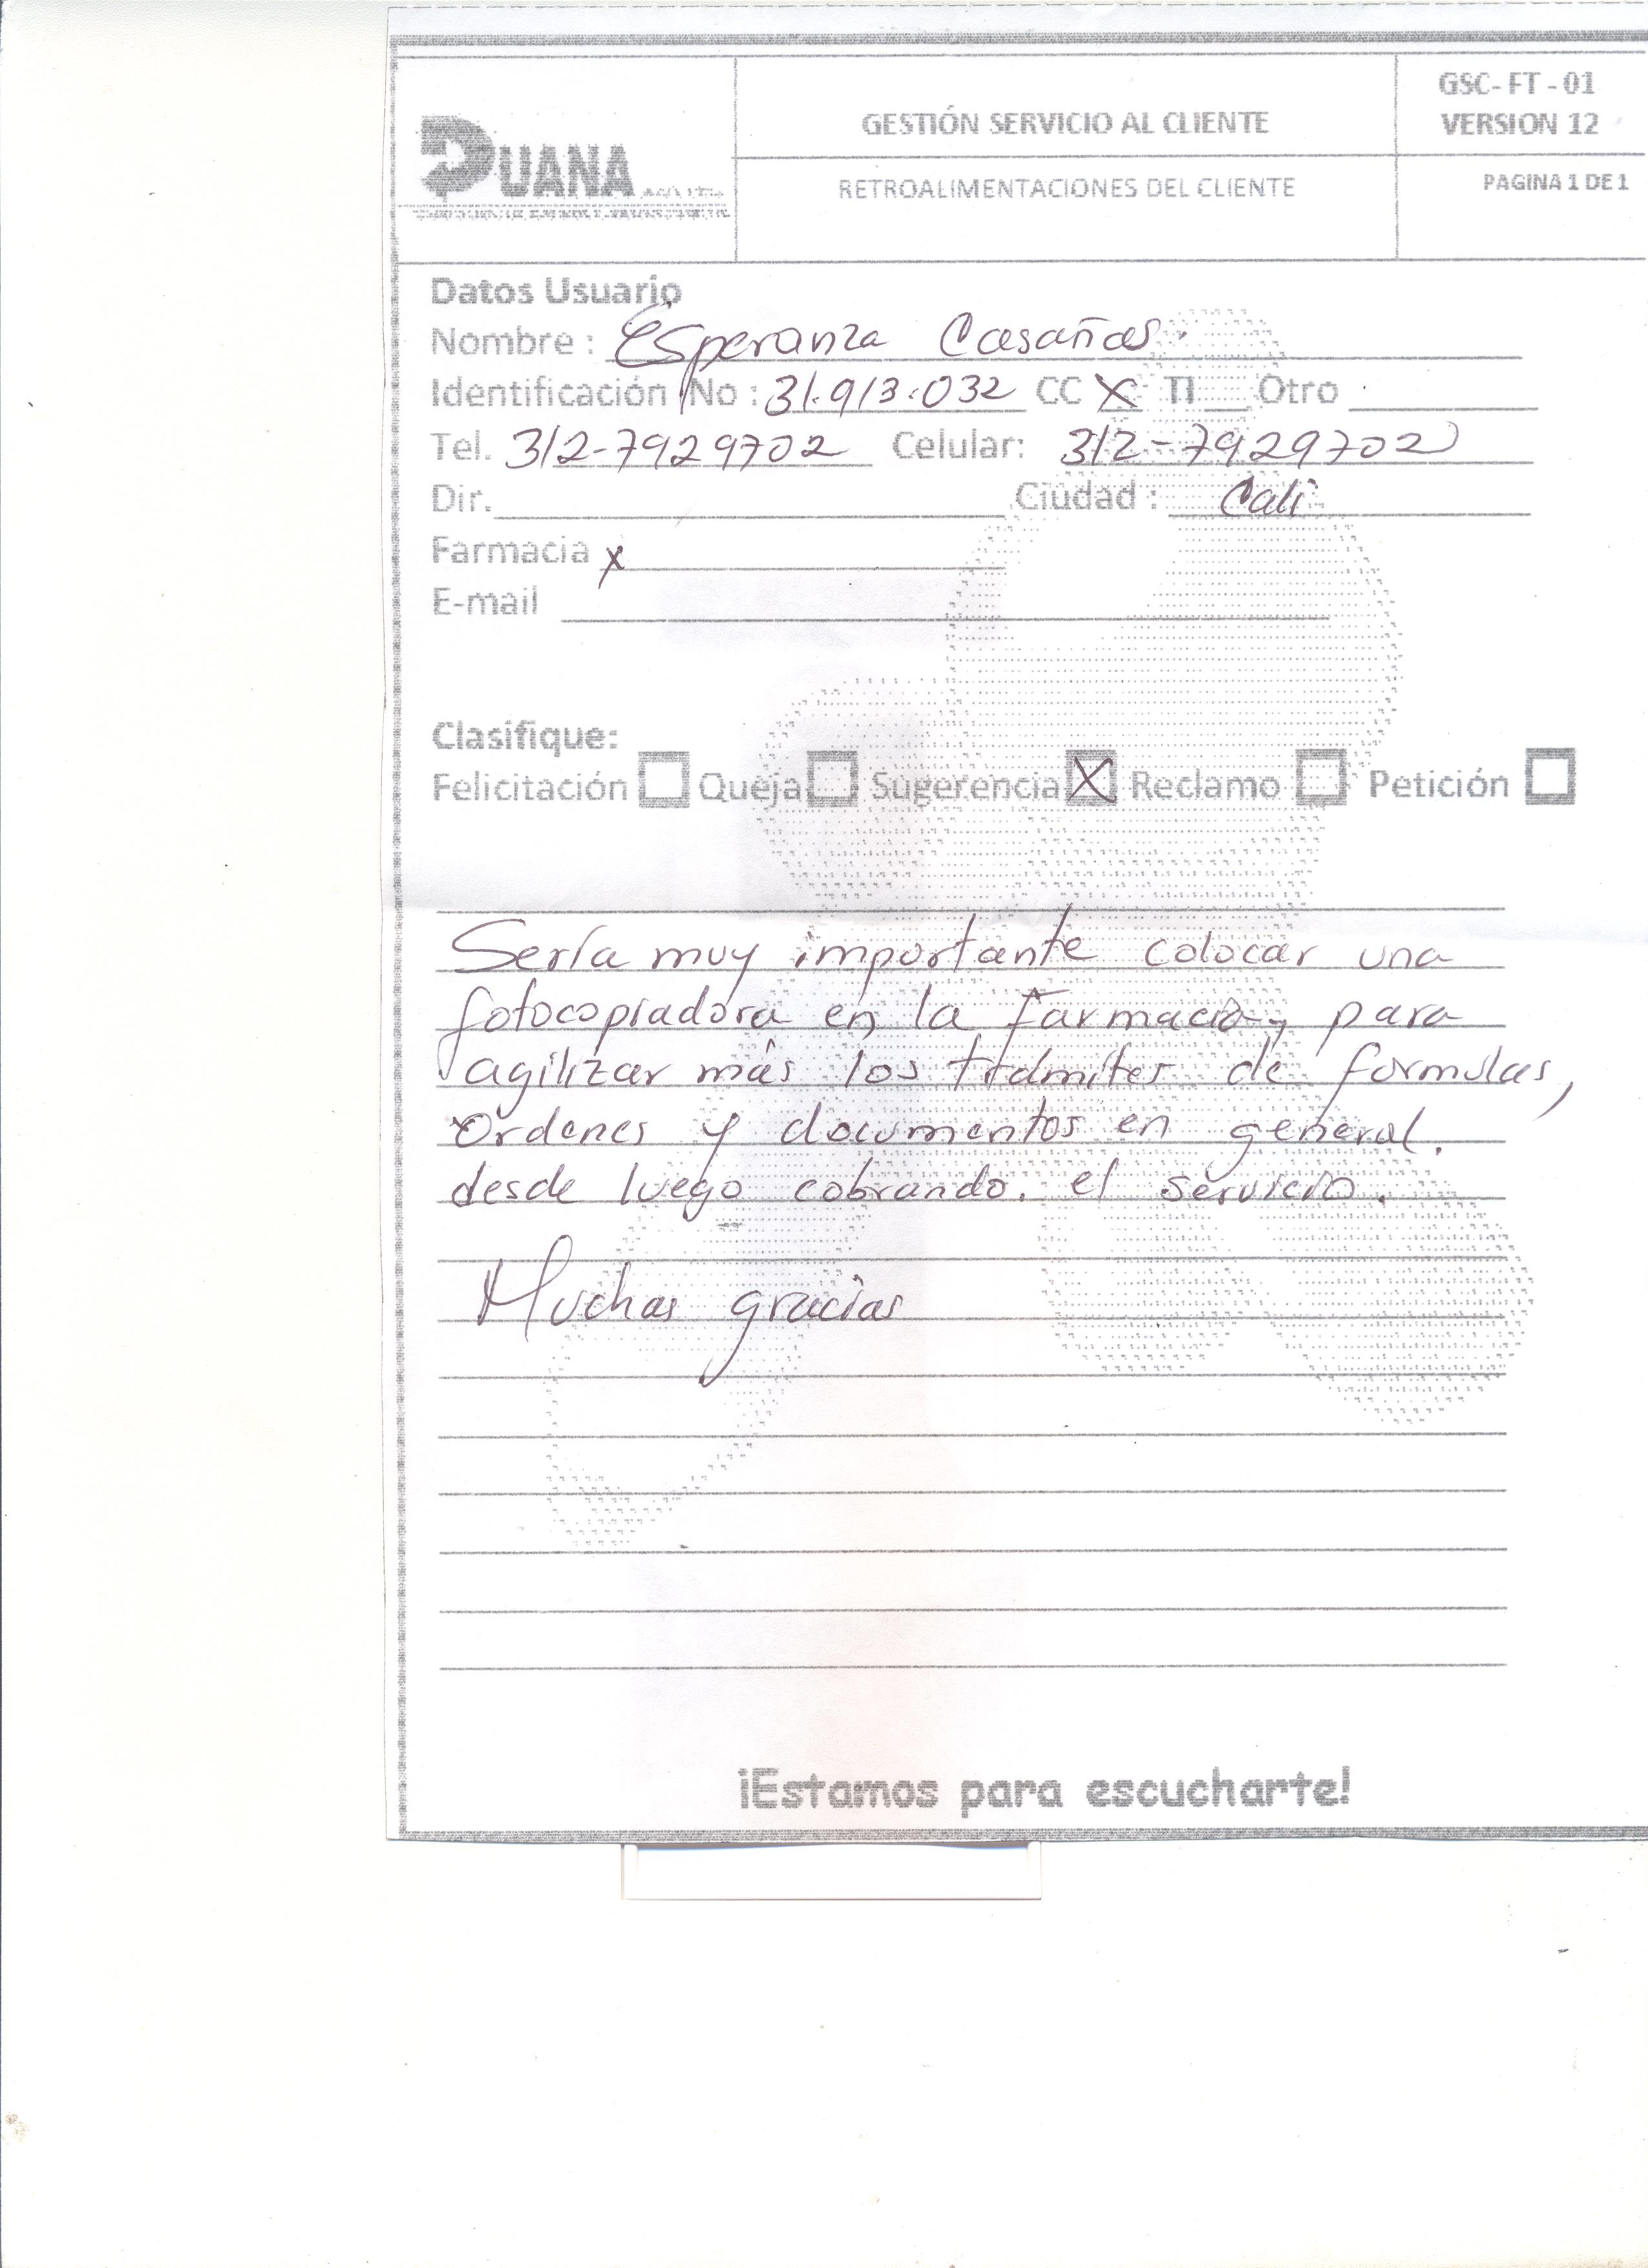 DUANA
GESTIÓN SERVICIO AL CLIENTE
GSC- FT - 01
VERSION 12
RETROALIMENTACIONES DEL CLIENTE
PAGINA 1 DE 1
Datos Usuario
Nombre : Esperanza Casañas.
Identificación No : 31.913.032 CC X TI Otro
Tel. 312-7929702 Celular: 312-7929702
Dir. Ciudad : Cali
Farmacia x
E-mail
Clasifique:
Felicitación Queja Sugerencia X Reclamo Petición
Sería muy importante colocar una
fotocopiadora en la farmacia, para
agilizar más los trámites de formulas,
Ordenes y documentos en general.
desde luego cobrando. el servicio.
Muchas gracias
¡Estamos para escucharte!